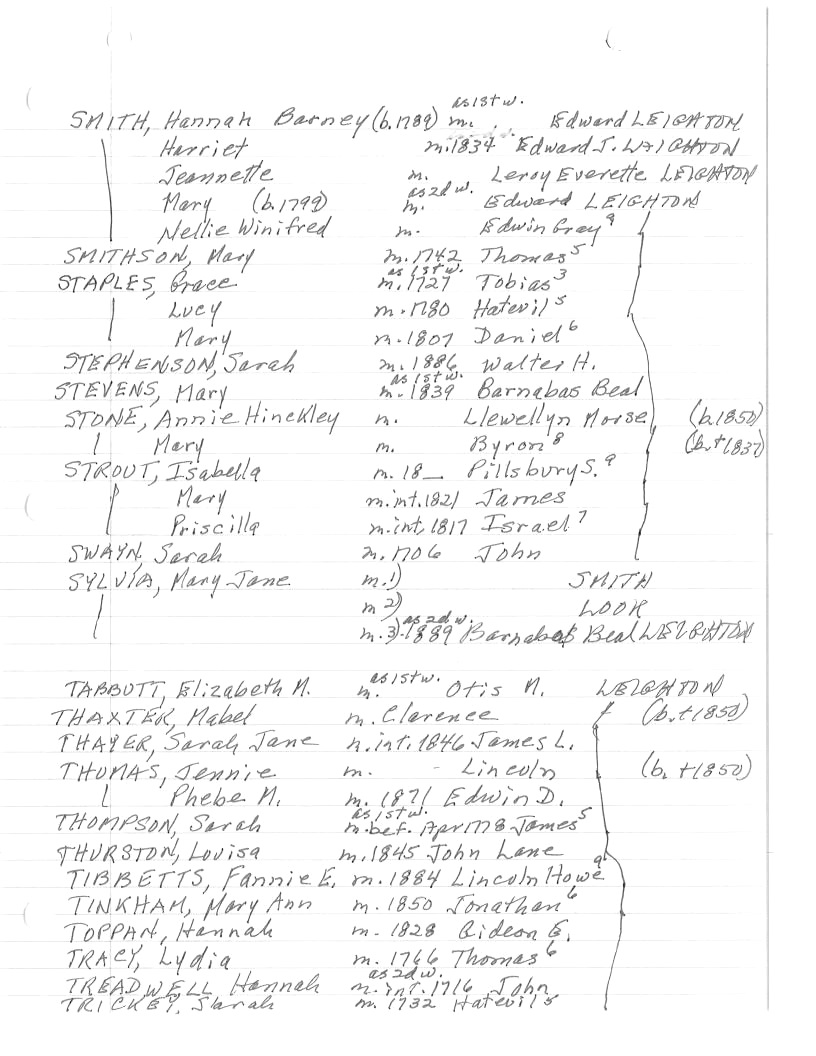 as 1st w.
SMITH, Hannah Barney (b.1789) m. Edward LEIGHTON
Harriet m.1834 Edward J. LEIGHTON
Jeannette m. Leroy Everette LEIGHTON
as 2d w.
Mary (b.1799) m. Edward LEIGHTON
Nellie Winifred m. Edwin Gray 9
SMITHSON, Mary m.1742 Thomas 5
as 1st w.
STAPLES, Grace m.1727 Tobias 3
Lucy m.1780 Hatevil 5
Mary m.1807 Daniel 6
STEPHENSON, Sarah m.1886 Walter H.
as 1st w.
STEVENS, Mary m.1839 Barnabas Beal
STONE, Annie Hinckley m. Llewellyn Morse (b.1850)
Mary m. Byron 8 (b.+1837)
STROUT, Isabella m. 18__ Pillsbury S. 9
Mary m.int.1821 James
Priscilla m.int.1817 Israel 7
SWAYN, Sarah m.1706 John
SYLVIA, Mary Jane m.1) SMITH
m 2) LOOK
as 2d w.
m.3) 1889 Barnabas Beal LEIGHTON
as 1st w.
TABBUTT, Elizabeth M. m. Otis M. LEIGHTON
THAXTER, Mabel m. Clarence (b.+1850)
THAYER, Sarah Jane m.int.1846 James L.
THOMAS, Jennie m. - Lincoln (b. +1850)
Phebe M. m. 1871 Edwin D.
as 1st w.
THOMPSON, Sarah m.bef. Apr 1778 James 5
THURSTON, Louisa m.1845 John Lane
TIBBETTS, Fannie E. m. 1884 Lincoln Howe 9
TINKHAM, Mary Ann m. 1850 Jonathan 6
TOPPAN, Hannah m. 1828 Gideon E.
TRACY, Lydia m. 1766 Thomas 6
as 2d w.
TREADWELL Hannah m.int.1716 John
TRICKEY, Sarah m. 1732 Hatevil 5